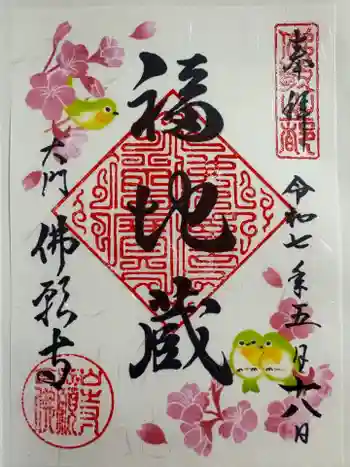 奉拝
令和七年五月廿八日
福地蔵
大門
佛願寺